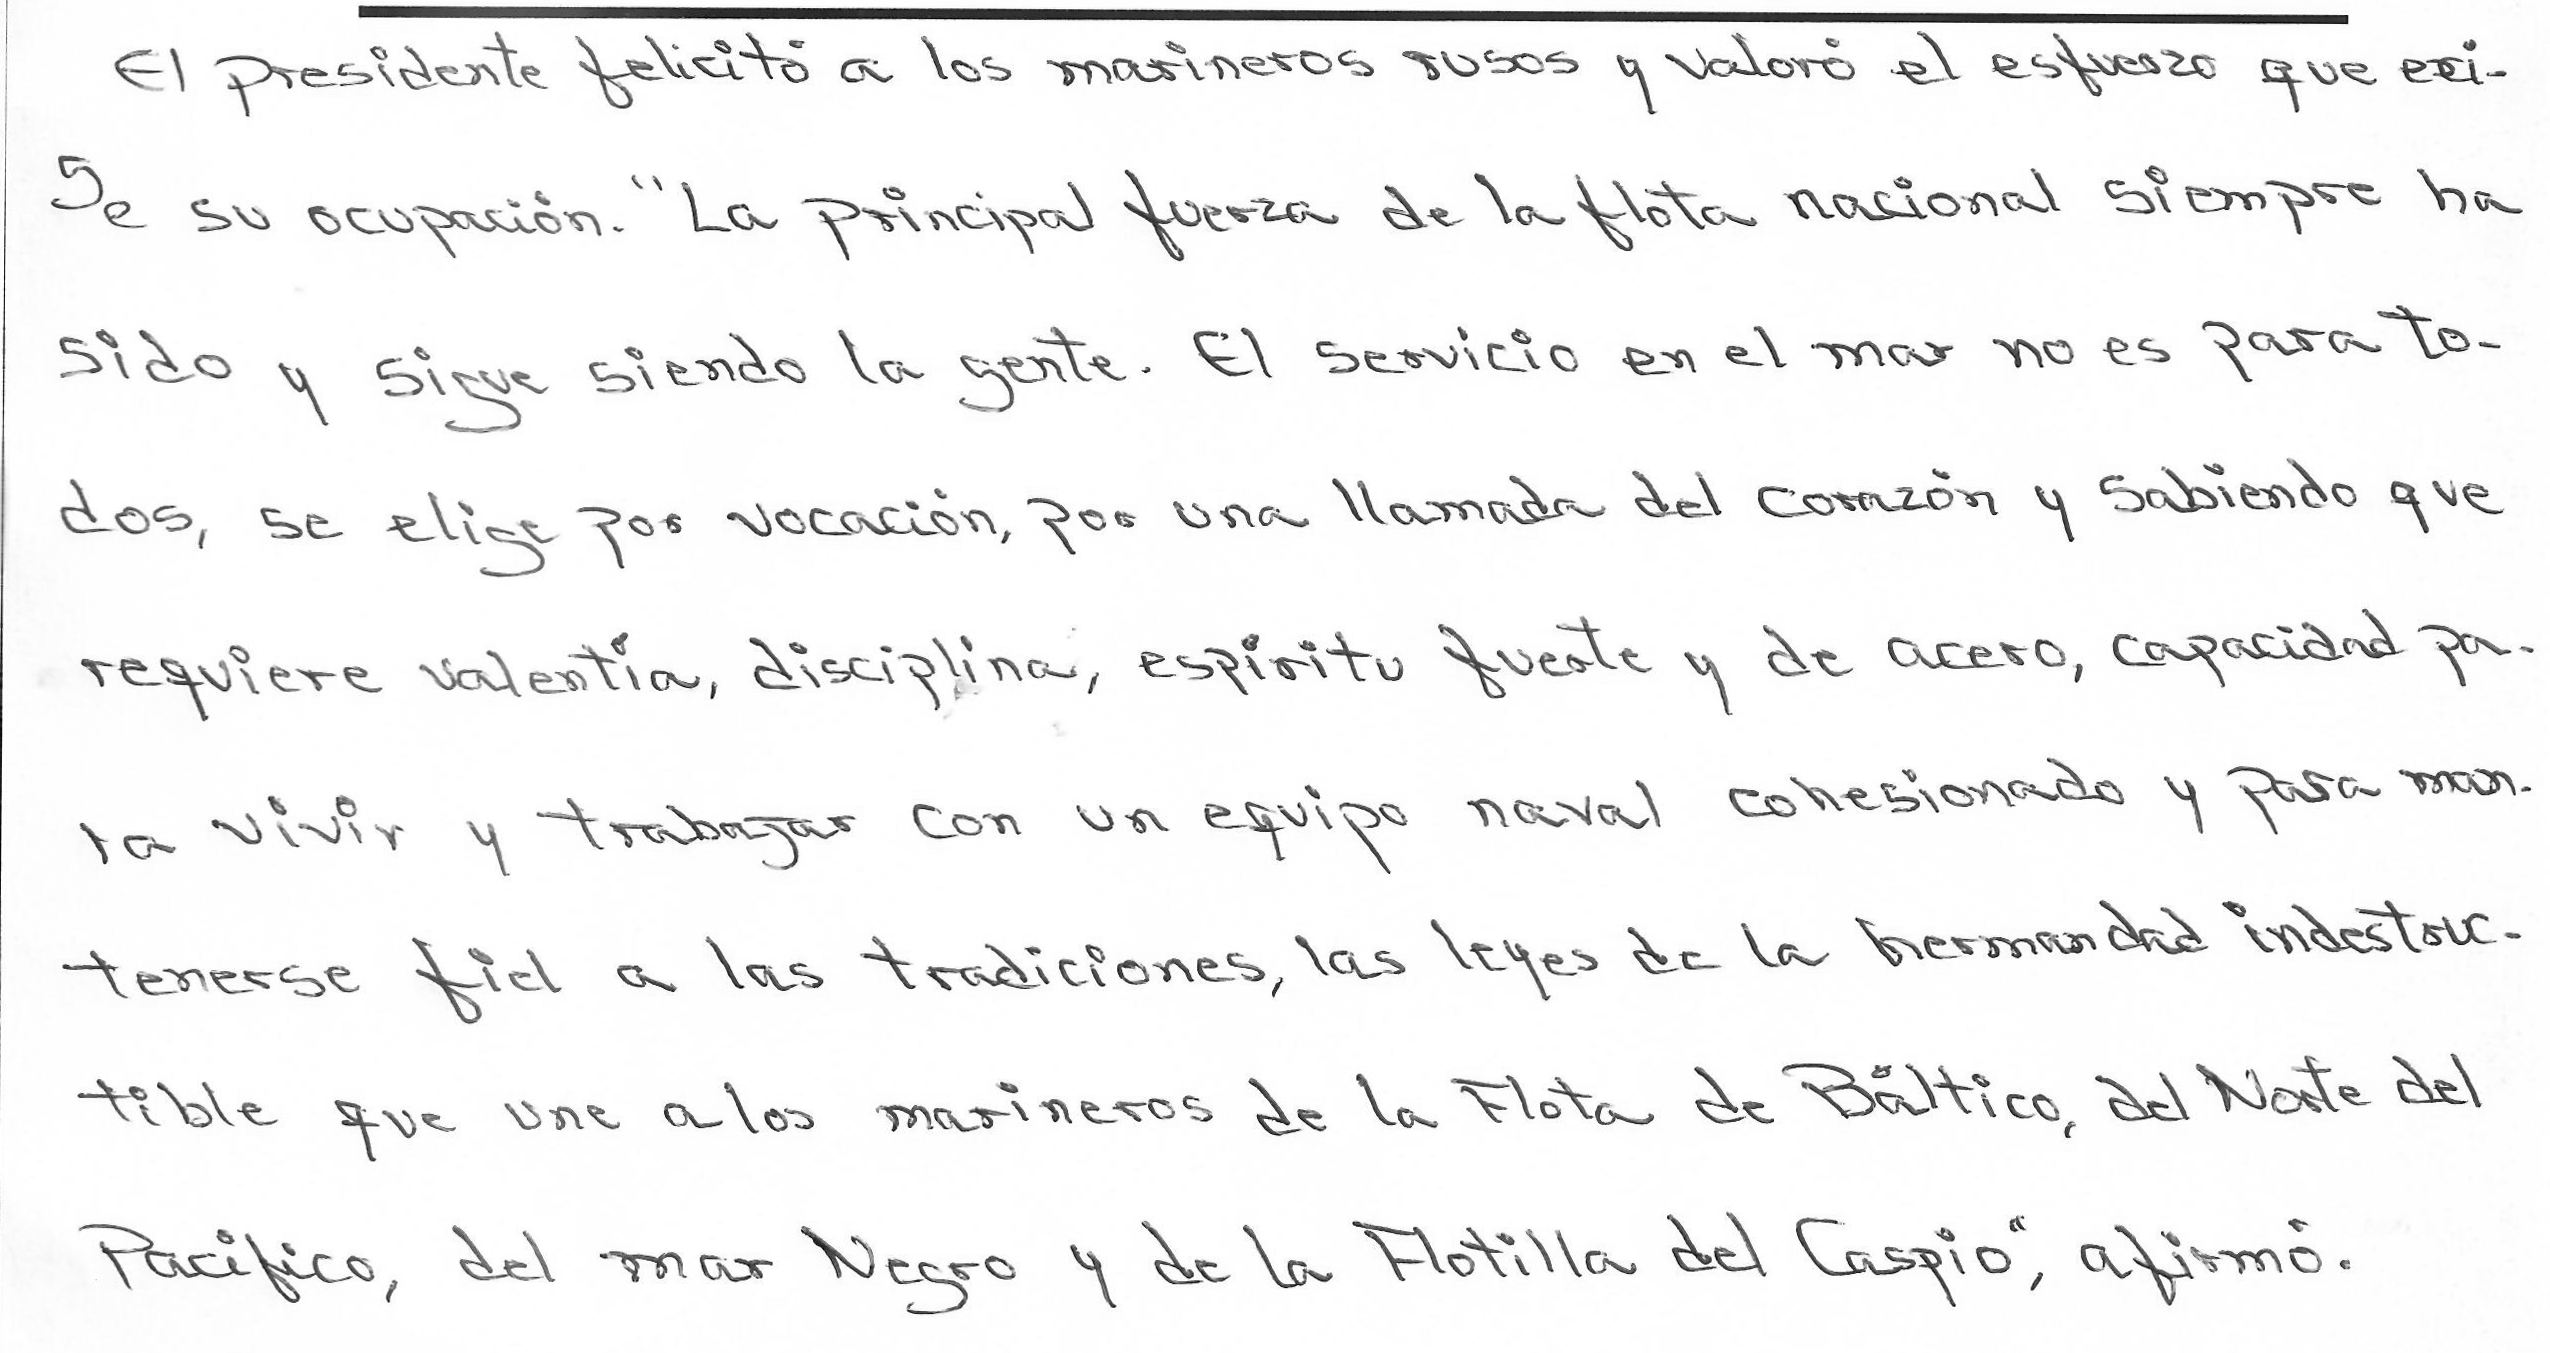 El presidente felicitó a los marineros rusos y valoró el esfuerzo que exi-
ge su ocupación. "La principal fuerza de la flota nacional siempre ha
sido y sigue siendo la gente. El servicio en el mar no es para to-
dos, se elige por vocación, por una llamada del corazón y sabiendo que
requiere valentía, disciplina, espíritu fuerte y de acero, capacidad pa-
ra vivir y trabajar con un equipo naval cohesionado y para man-
tenerse fiel a las tradiciones, las leyes de la hermandad indestruc-
tible que une a los marineros de la Flota de Báltico, del Norte del
Pacífico, del mar Negro y de la Flotilla del Caspio", afirmó.